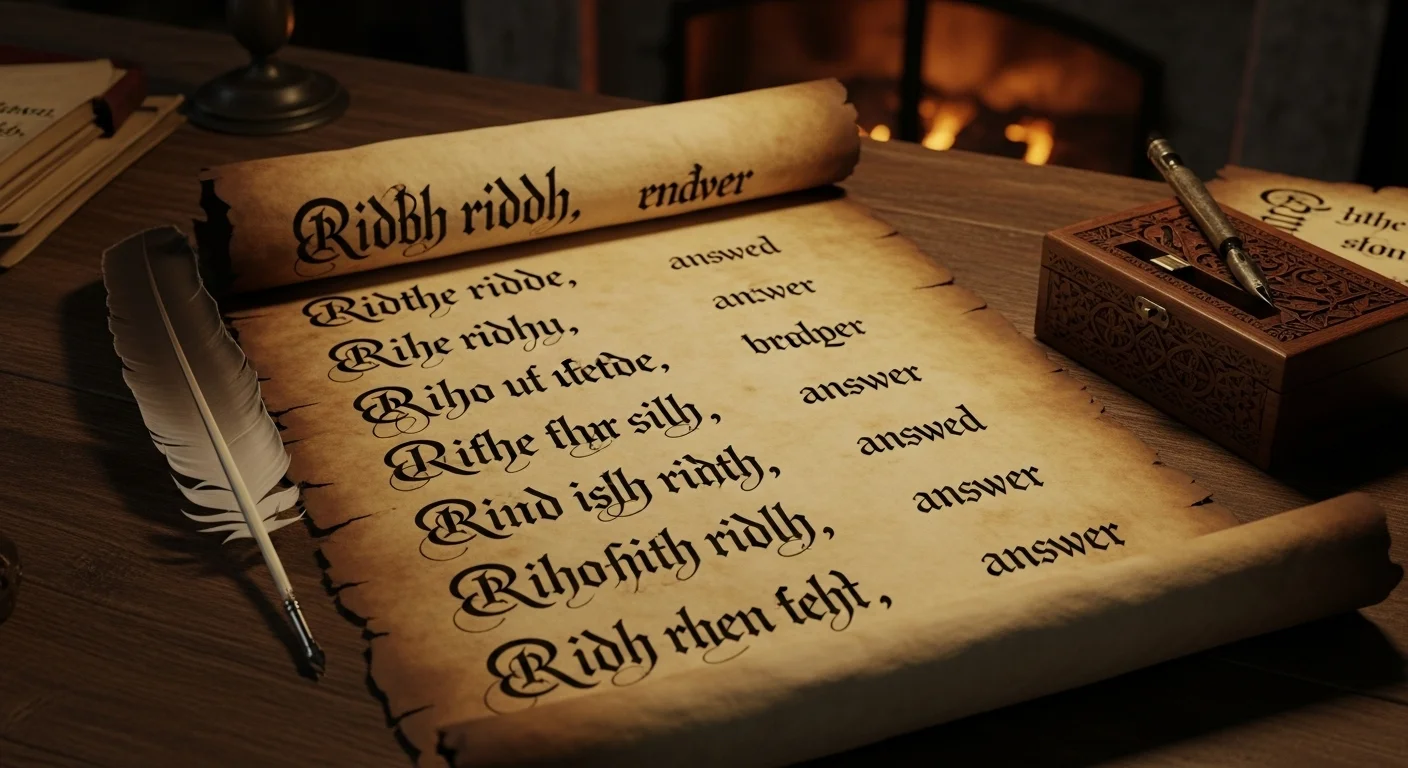 Ridbh riddh, endver
Ridthe ridde, answed
Rihe ridhy, answer
Riho ut, bradyer
Rithe thyr silh, answer
Rind islh ridth, answed
Rihohith ridlh, answer
Ridh rhen teht, answer